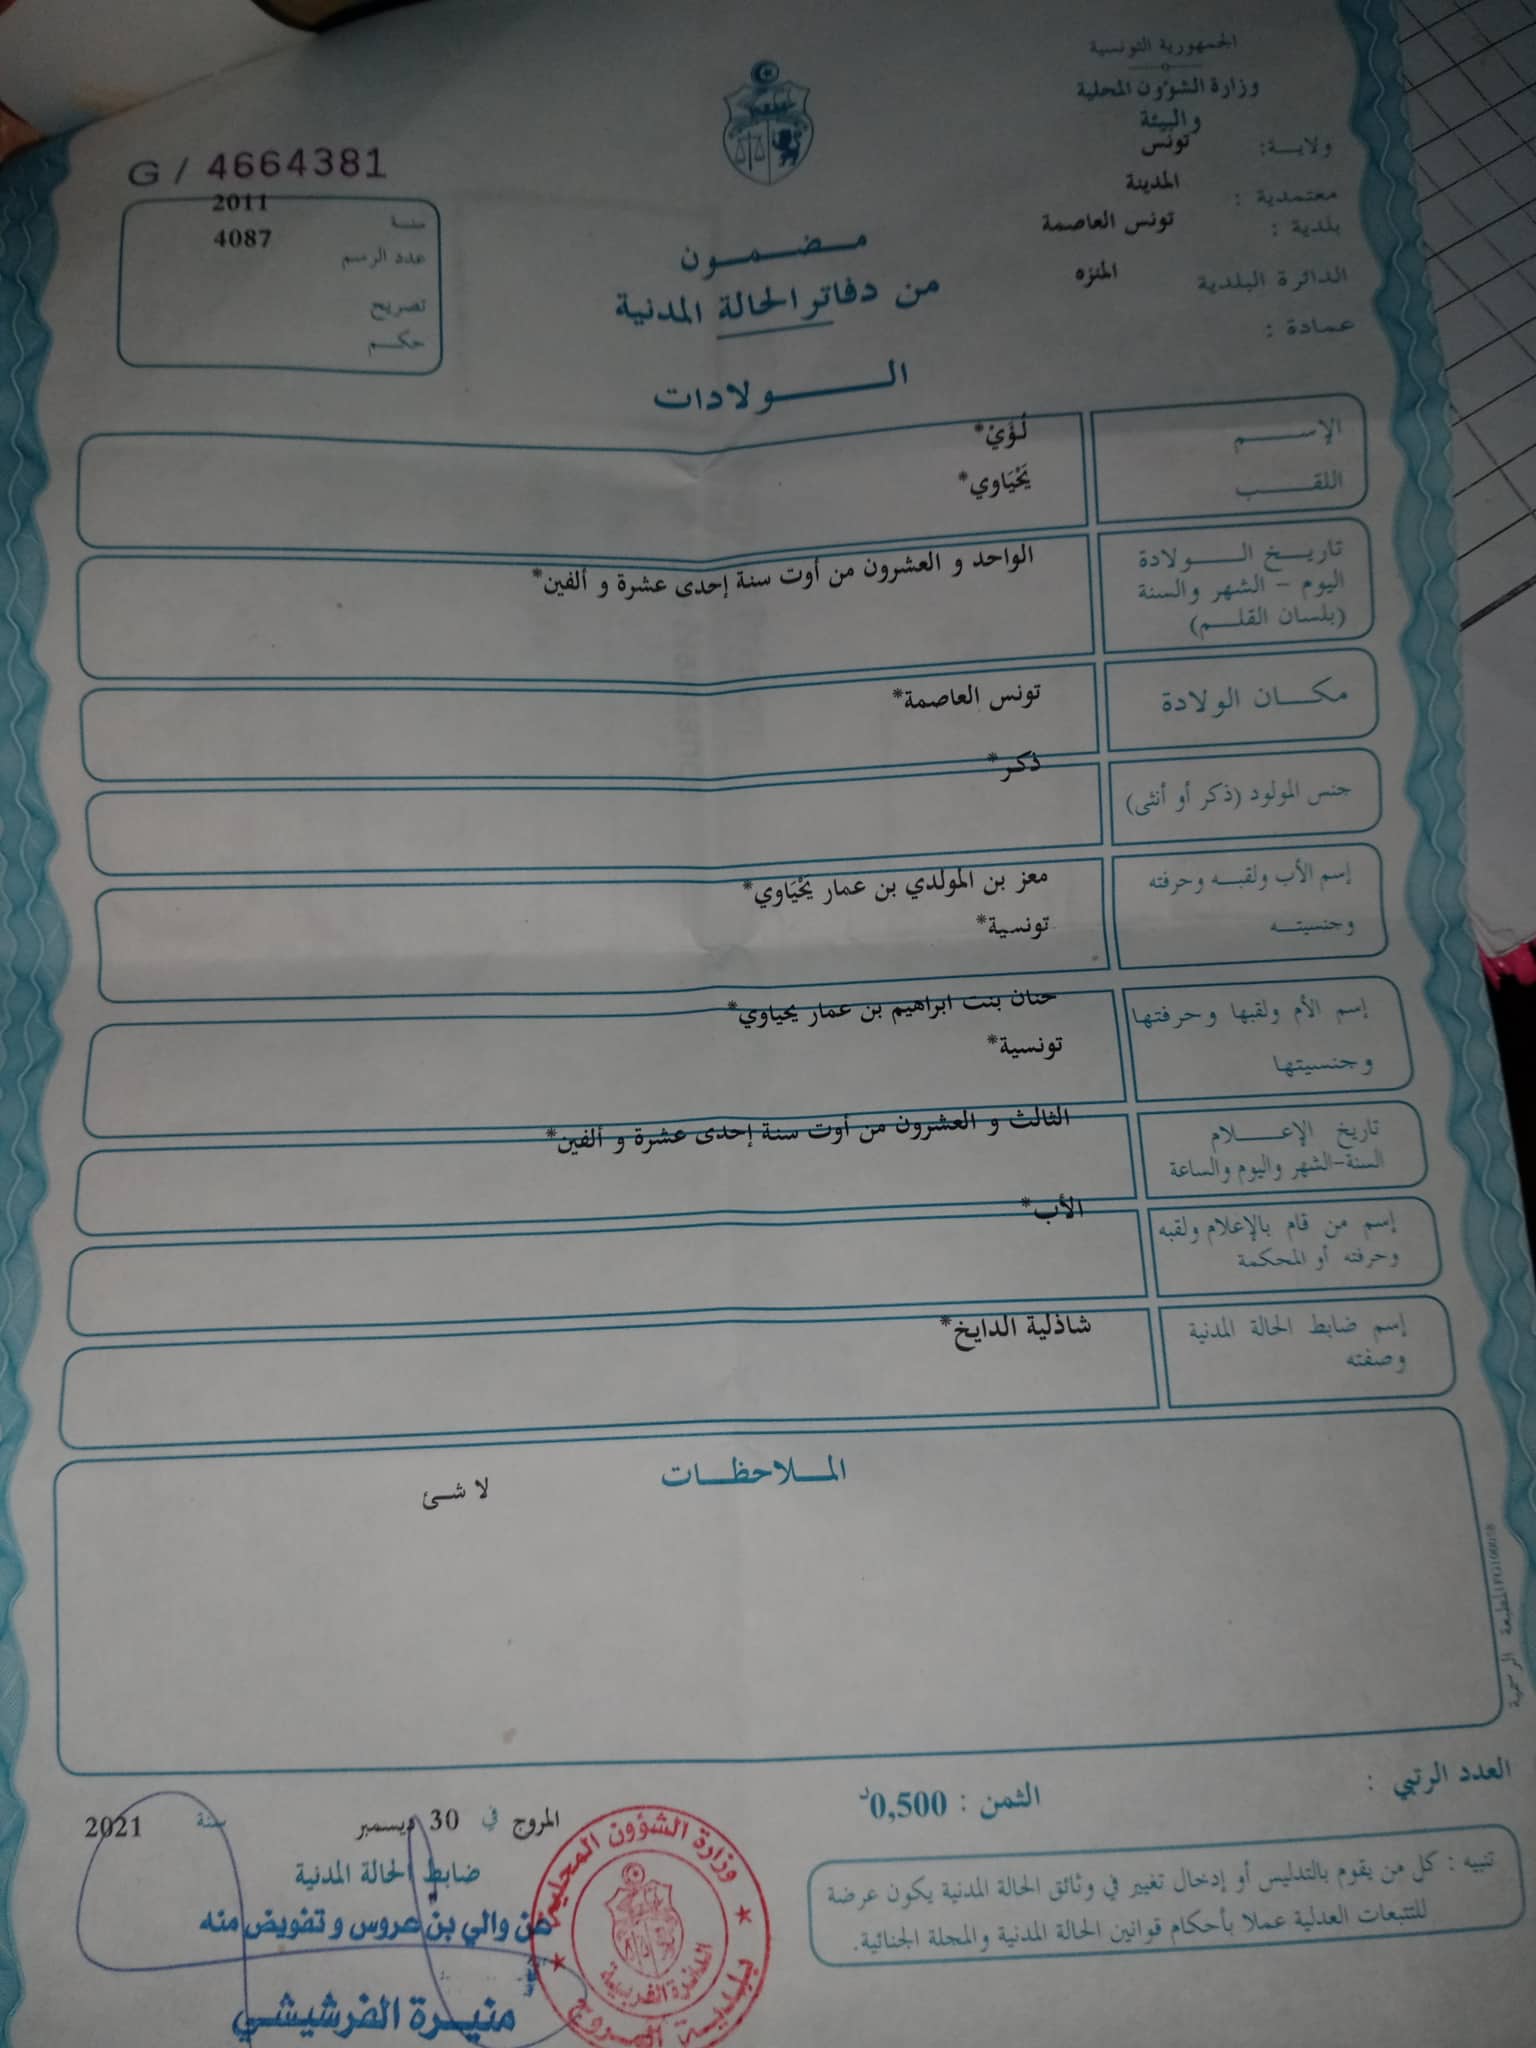 الجمهورية التونسية
وزارة الشؤون المحلية
والبيئة
ولاية: تونس
معتمدية : المدينة
بلدية : تونس العاصمة
الدائرة البلدية المنزه
عمادة :
G / 4664381
سنة 2011
عدد الرسم 4087
تصريح
حكم
مضمون
من دفاتر الحالة المدنية
الولادات
الإسم لُؤَيْ*
اللقب يَحْيَاوي*
تاريخ الولادة الواحد و العشرون من أوت سنة إحدى عشرة و ألفين*
اليوم - الشهر والسنة
(بلسان القلم)
مكان الولادة تونس العاصمة*
جنس المولود (ذكر أو أنثى) ذكر*
إسم الأب ولقبه وحرفته معز بن المولدي بن عمار يَحْيَاوي*
وجنسيته تونسية*
إسم الأم ولقبها وحرفتها حنان بنت ابراهيم بن عمار يحياوي*
وجنسيتها تونسية*
تاريخ الإعلام الثالث و العشرون من أوت سنة إحدى عشرة و ألفين*
السنة-الشهر واليوم والساعة
إسم من قام بالإعلام ولقبه الأب*
وحرفته أو المحكمة
إسم ضابط الحالة المدنية شاذلية الدايخ*
وصفته
الملاحظات
لا شئ
المطبعة الرسمية
العدد الرتبي :
الثمن : 0,500د
المروج في 30 ديسمبر سنة 2021
ضابط الحالة المدنية
عن والي بن عروس و تفويض منه
منيرة الفرشيشي
وزارة الشؤون المحلية
الدائرة الفرعية
بلدية المروج
تنبيه : كل من يقوم بالتدليس أو إدخال تغيير في وثائق الحالة المدنية يكون عرضة
للتتبعات العدلية عملا بأحكام قوانين الحالة المدنية والمجلة الجنائية.